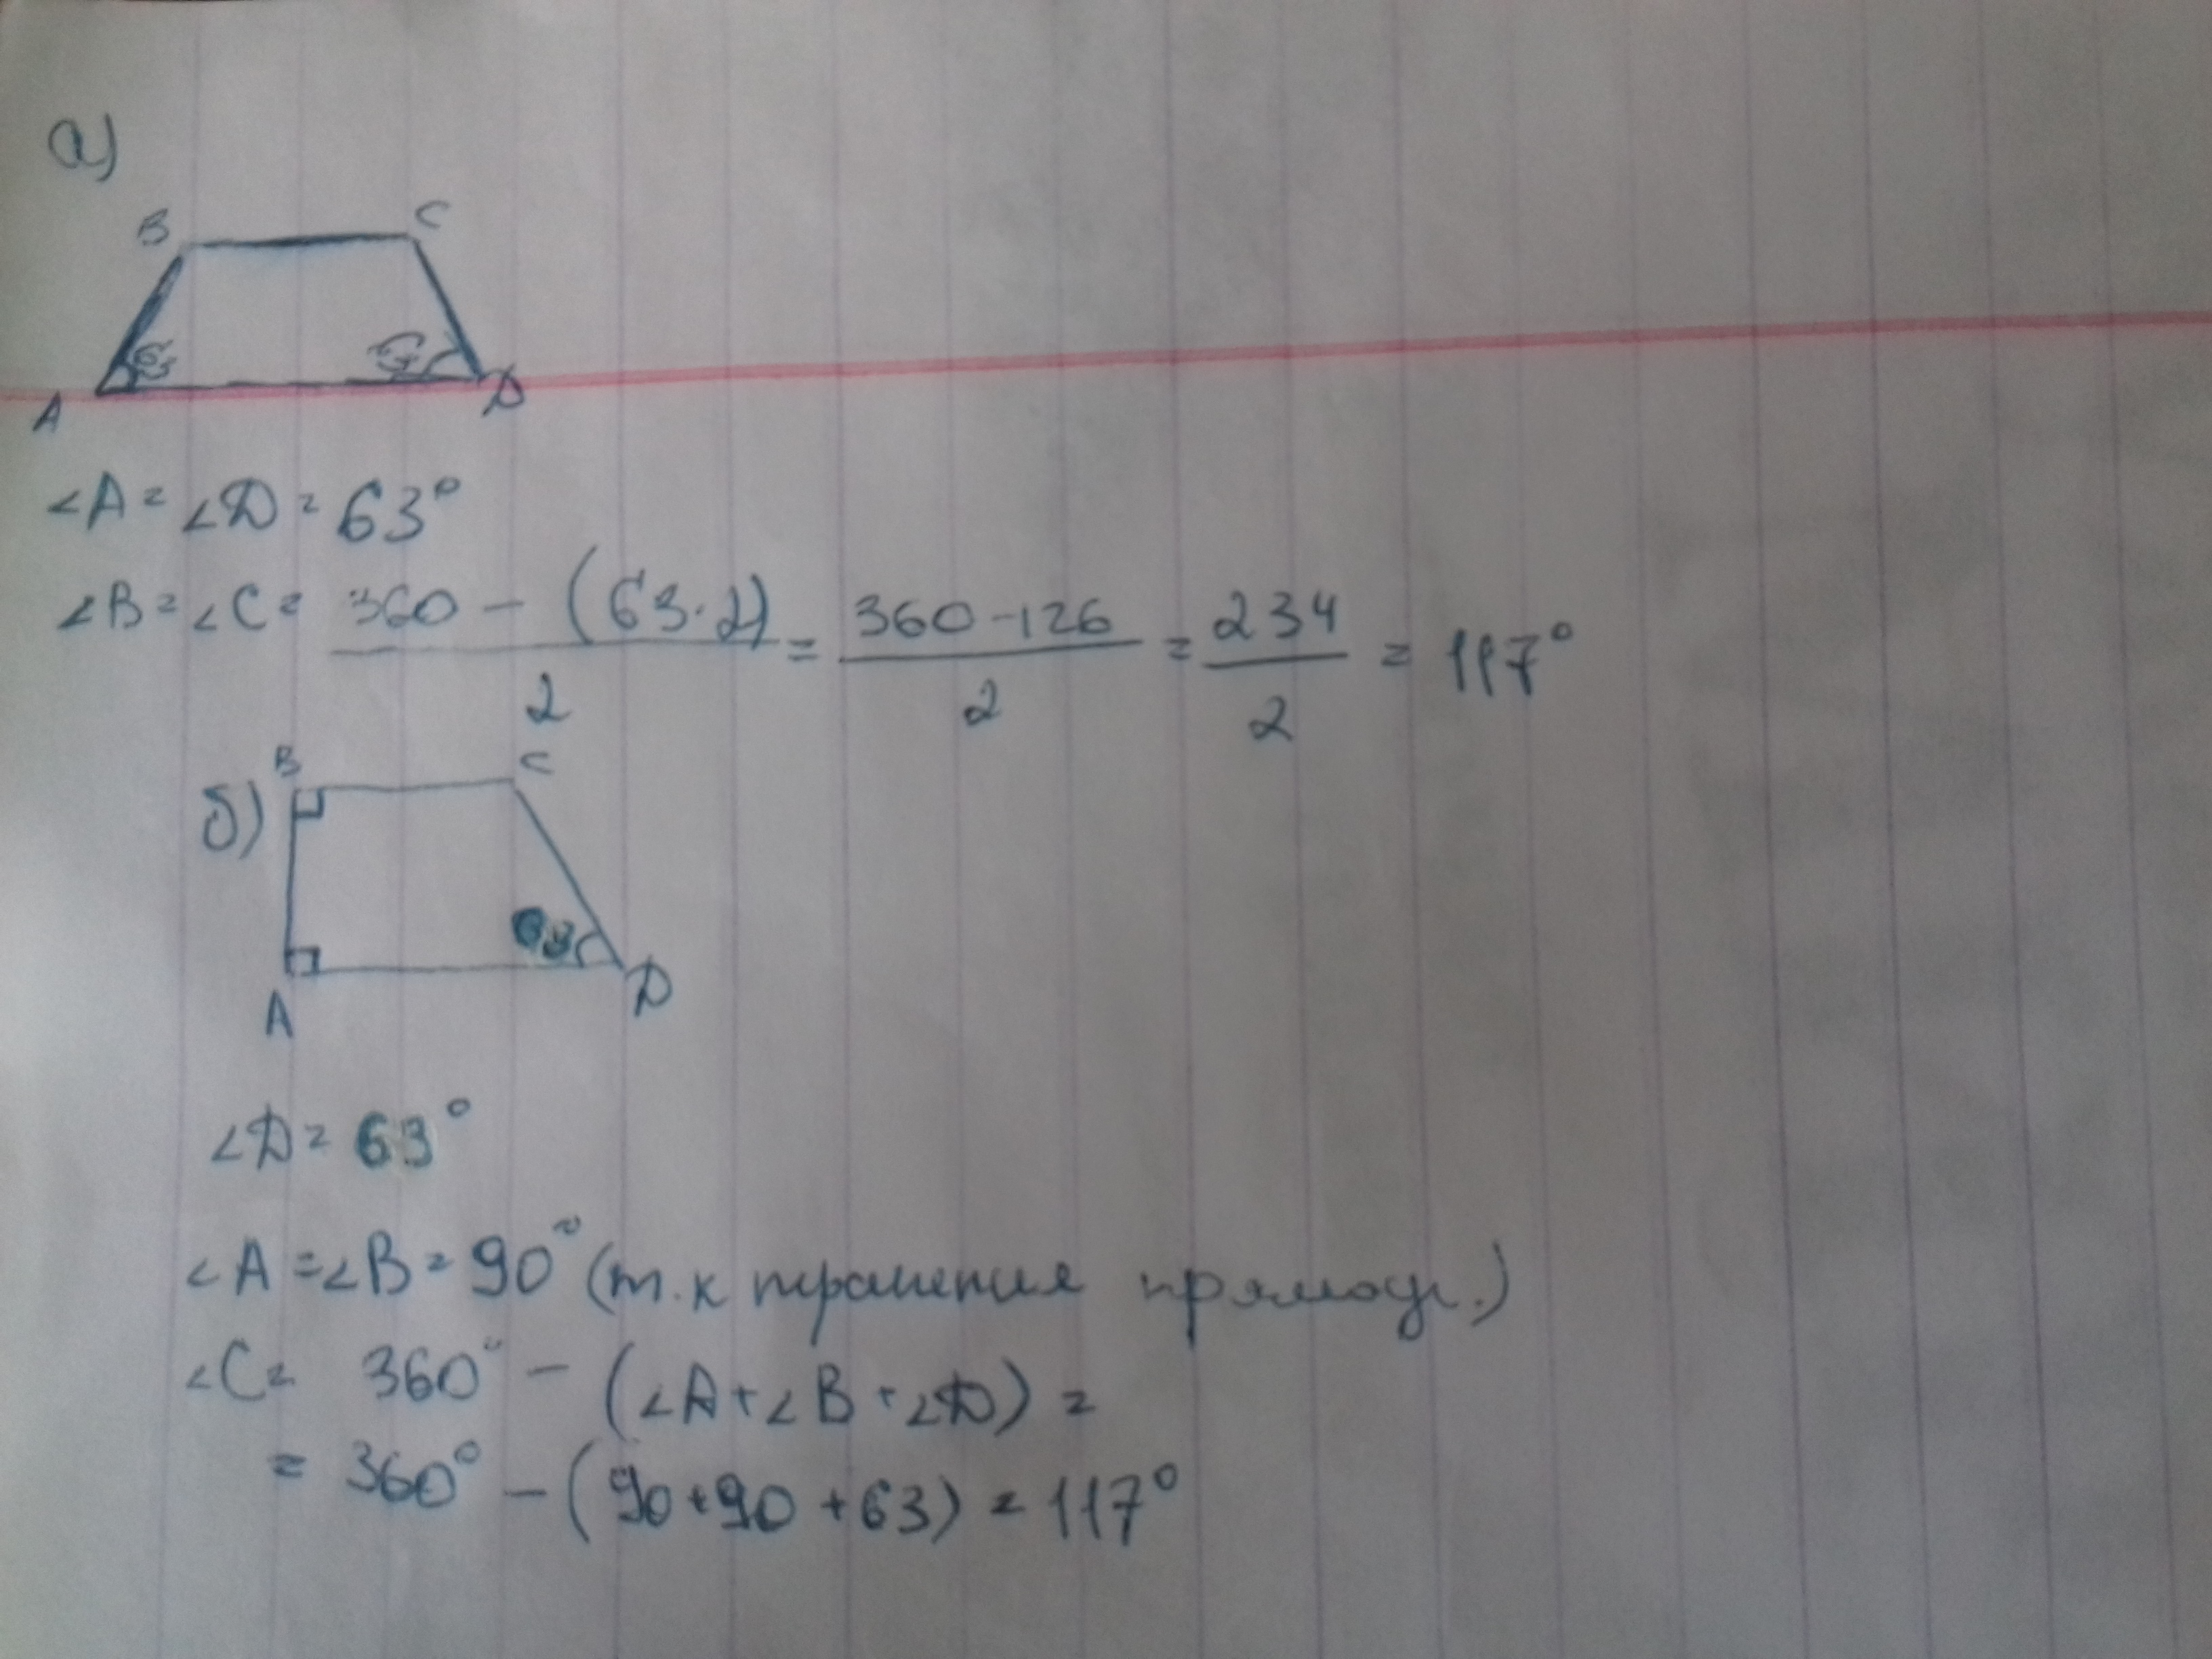 а)
B C
63 63
A D
∠A = ∠D = 63°
∠B = ∠C = (360 - (63·2))/2 = (360-126)/2 = 234/2 = 117°
B C
б)
63
A D
∠D = 63°
∠A = ∠B = 90° (т.к трапеция прямоуг.)
∠C = 360° - (∠A+∠B+∠D) =
= 360° - (90+90+63) = 117°